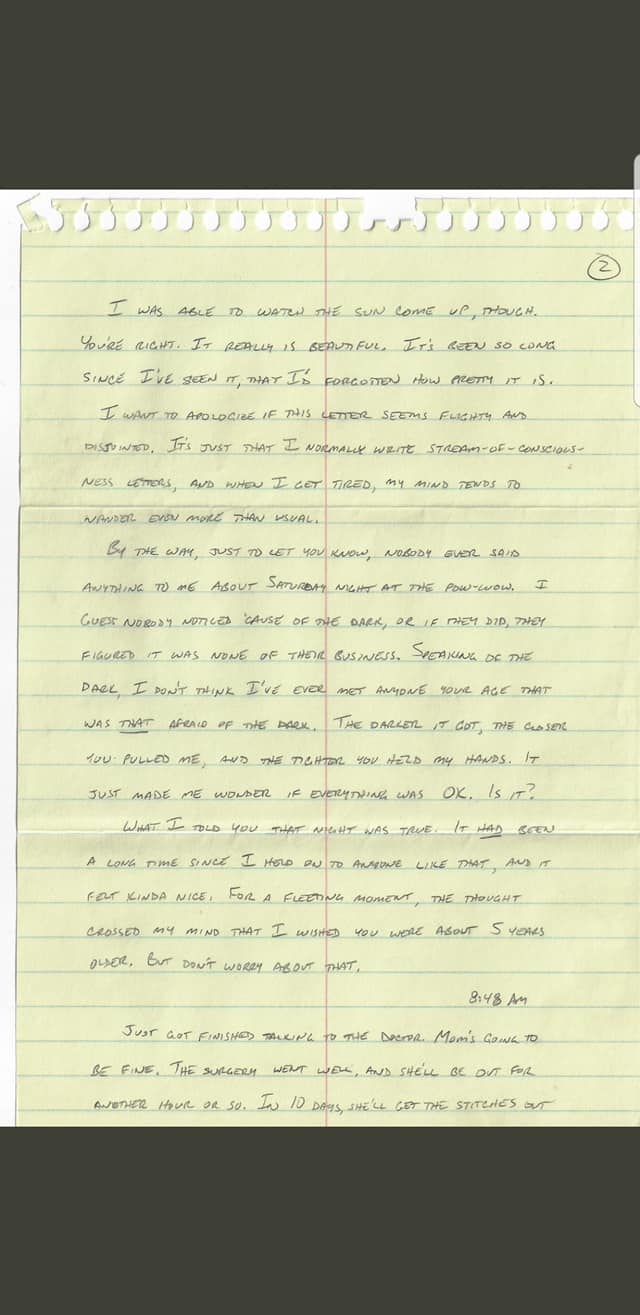 2
I WAS ABLE TO WATCH THE SUN COME UP, THOUGH.
YOU'RE RIGHT. IT REALLY IS BEAUTIFUL. IT'S BEEN SO LONG
SINCE I'VE SEEN IT, THAT I'D FORGOTTEN HOW PRETTY IT IS.
I WANT TO APOLOGIZE IF THIS LETTER SEEMS FLIGHTY AND
DISJOINTED. IT'S JUST THAT I NORMALLY WRITE STREAM-OF-CONSCIOUS-
NESS LETTERS, AND WHEN I GET TIRED, MY MIND TENDS TO
WANDER EVEN MORE THAN USUAL.
BY THE WAY, JUST TO LET YOU KNOW, NOBODY EVER SAID
ANYTHING TO ME ABOUT SATURDAY NIGHT AT THE POW-WOW. I
GUESS NOBODY NOTICED 'CAUSE OF THE DARK, OR IF THEY DID, THEY
FIGURED IT WAS NONE OF THEIR BUSINESS. SPEAKING OF THE
DARK, I DON'T THINK I'VE EVER MET ANYONE YOUR AGE THAT
WAS THAT AFRAID OF THE DARK. THE DARKER IT GOT, THE CLOSER
YOU PULLED ME, AND THE TIGHTER YOU HELD MY HANDS. IT
JUST MADE ME WONDER IF EVERYTHING WAS OK. IS IT?
WHAT I TOLD YOU THAT NIGHT WAS TRUE. IT HAD BEEN
A LONG TIME SINCE I HELD ON TO ANYONE LIKE THAT, AND IT
FELT KINDA NICE. FOR A FLEETING MOMENT, THE THOUGHT
CROSSED MY MIND THAT I WISHED YOU WERE ABOUT 5 YEARS
OLDER. BUT DON'T WORRY ABOUT THAT.
8:48 AM
JUST GOT FINISHED TALKING TO THE DOCTOR. MOM'S GOING TO
BE FINE. THE SURGERY WENT WELL, AND SHE'LL BE OUT FOR
ANOTHER HOUR OR SO. IN 10 DAYS, SHE'LL GET THE STITCHES OUT